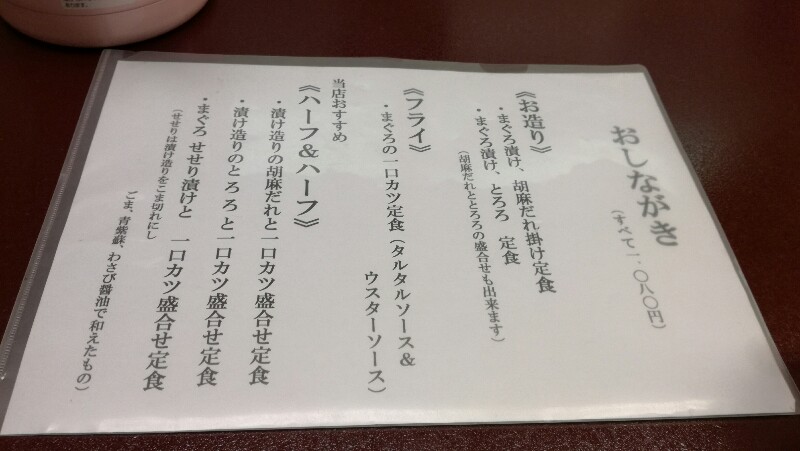 おしながき
(すべて一、〇八〇円)
《お造り》
・まぐろ漬け、胡麻だれ掛け定食
・まぐろ漬け、とろろ 定食
(胡麻だれととろろの盛合せも出来ます)
《フライ》
・まぐろの一口カツ定食(タルタルソース&
ウスターソース)
当店おすすめ
《ハーフ&ハーフ》
・漬け造りの胡麻だれと一口カツ盛合せ定食
・漬け造りのとろろと一口カツ盛合せ定食
・まぐろ せせり漬けと 一口カツ盛合せ定食
(せせりは漬け造りをこま切れにし
ごま、青紫蘇、わさび醤油で和えたもの)